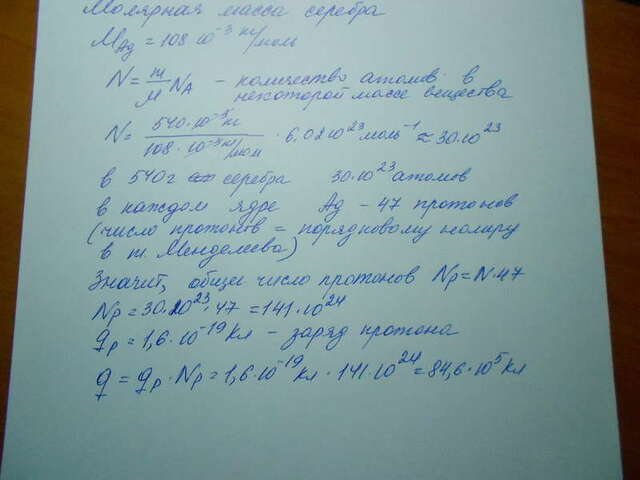 Молярная масса серебра
M_Ag = 108·10^-3 кг/моль
N = m/M N_A - количество атомов в
некоторой массе вещества
N = 540·10^-3 кг / 108·10^-3 кг/моль · 6,02·10^23 моль^-1 ≈ 30·10^23
в 540 г серебра 30·10^23 атомов
в каждом ядре Ag - 47 протонов
(число протонов = порядковому номеру
в т. Менделеева)
Значит, общее число протонов Np = N·47
Np = 30·10^23·47 = 141·10^24
qp = 1,6·10^-19 Кл - заряд протона
q = qp·Np = 1,6·10^-19 Кл · 141·10^24 = 84,6·10^5 Кл